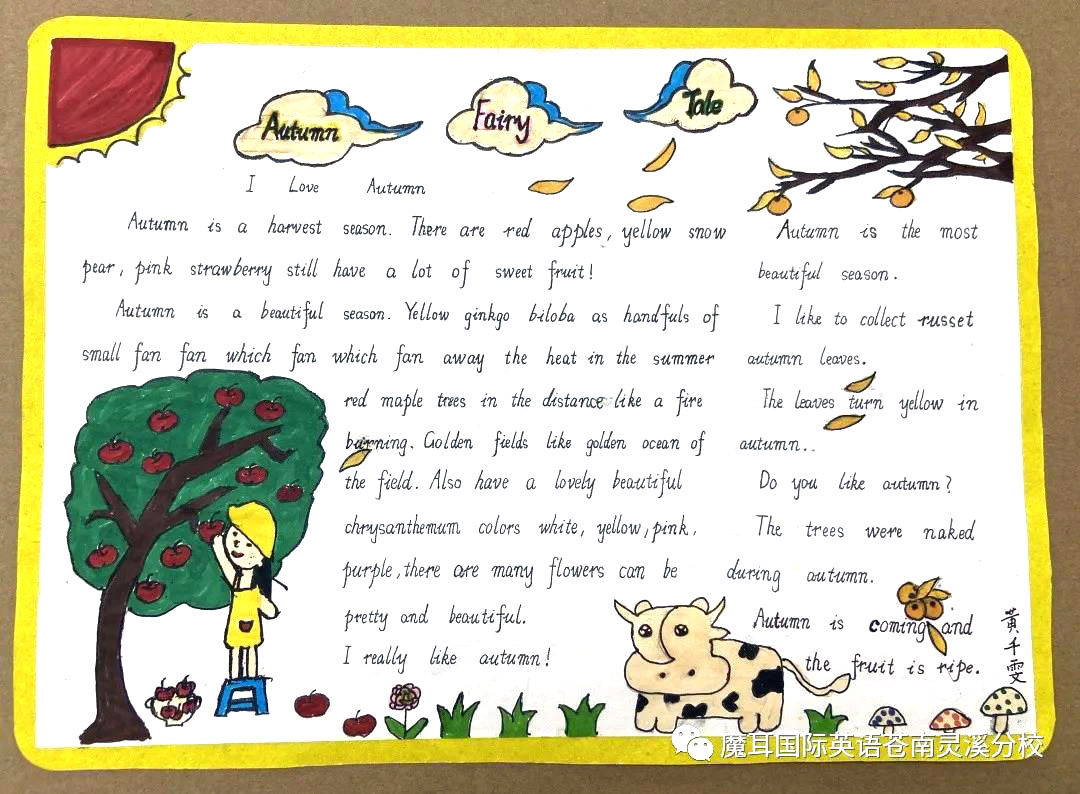 Autumn Fairy Tale
I Love Autumn
Autumn is a harvest season. There are red apples, yellow snow
pear, pink strawberry still have a lot of sweet fruit!
Autumn is a beautiful season. Yellow ginkgo biloba as handfuls of
small fan fan which fan which fan away the heat in the summer
red maple trees in the distance like a fire
burning. Golden fields like golden ocean of
the field. Also have a lovely beautiful
chrysanthemum colors white, yellow, pink,
purple, there are many flowers can be
pretty and beautiful.
I really like autumn!
Autumn is the most
beautiful season.
I like to collect russet
autumn leaves.
The leaves turn yellow in
autumn..
Do you like autumn?
The trees were naked
during autumn.
Autumn is coming and
the fruit is ripe.
黄千雯
魔耳国际英语苍南灵溪分校